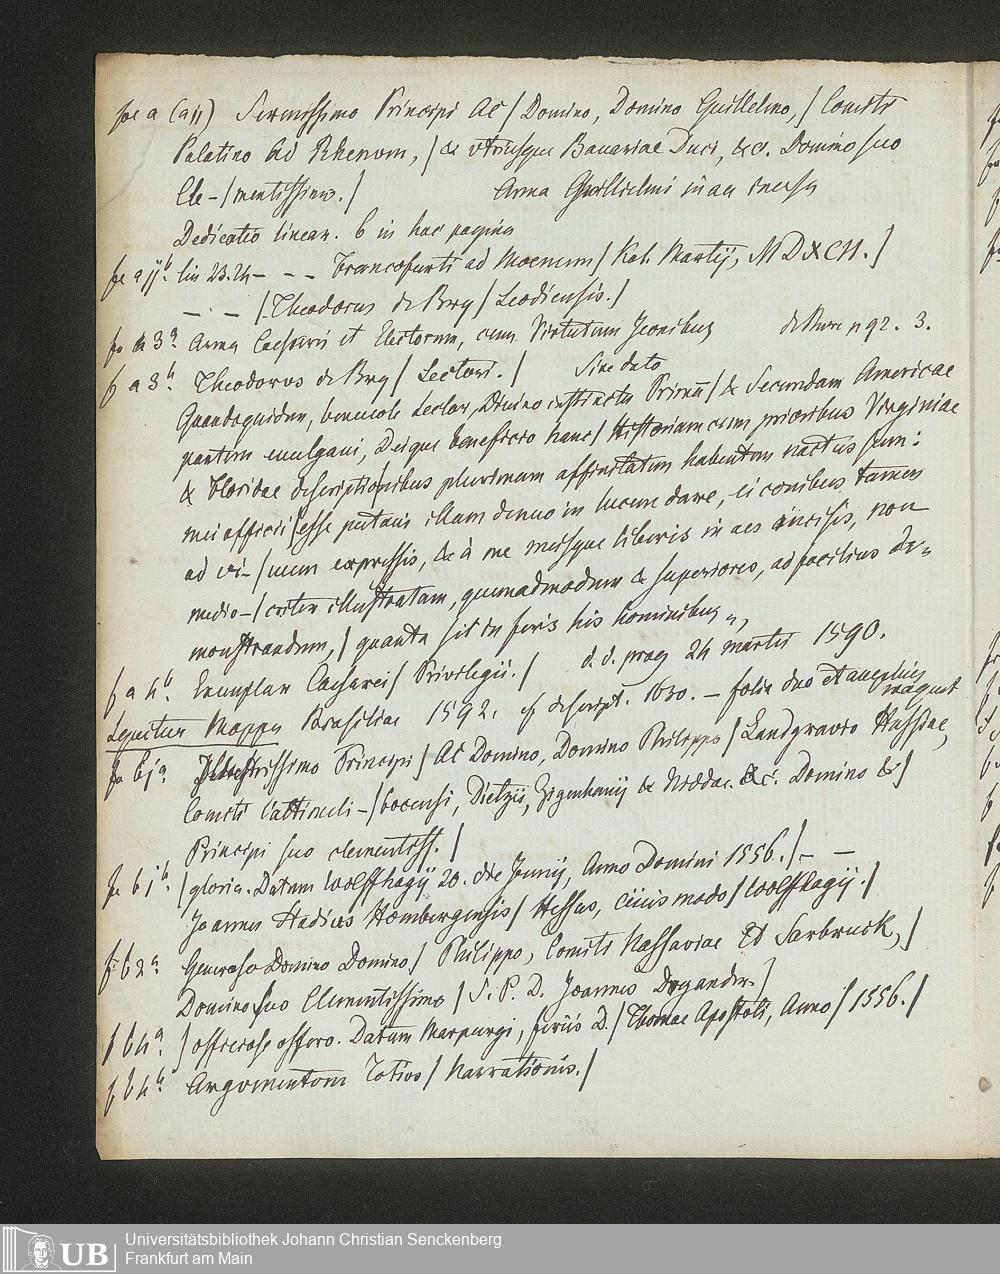 fo a (aij) Serenissimo Principi Ac / Domino, Domino Guillelmo, / Comiti
Palatino Ad Rhenum, / & utriusque Bavariae Duci, &c. Domino suo
Cle-/mentissimo. / Arma Guillelmi in aes incisa
Dedicatio linear. 6 in hac pagina
fo a ij b. lin 23.24 - - - Francofurti ad Moenum / Kal. Martij, MDXCII. /
- - - / Theodorus de Bry / Leodiensis. /
fo a 3 a. Arma Caesaris et Electorum, cum Virtutum Iconibus de Bure n 92. 3.
f a 3 b. Theodorus de Bry / Lectori. / Sine dato
Quandoquidem, benevole Lector, Divino instinctu Primā / & Secundam Americae
partem evulgavi, Deique beneficio hanc / Historiam cum prioribus Virginiae
& Floridae descriptionibus plurimum affinitatem habentem nactus sum:
mei officii / esse putavi illam denuo in lucem dare, ei conibus tamen
ad vi-/vum expressis, & à me meisque liberis in aes incisis, non
medio-/criter illustratam, quemadmodum & superiores, ad facilius de-
monstrandum, / quanta sit in feris his hominibus „,
f a 4 b. Exemplar Caesarei / Privilegii. / d. d. prag 24 martii 1590.
Sequitur Mappa Brasiliae 1592. cf descript. 1630. - folia duo
magnet
fo bj a Illustrissimo Principi / Ac Domino, Domino Philippo / Landgravio Hassiae,
Comiti Cattimeli-/bocensi, Dietzii, Zigenhanij & Niddae. &c. Domino & /
Principi suo clementiss. /
fo b j b. / gloria. Datum Wolffhagij 20. die Junij, Anno Domini 1556. / - -
Joannes Stadius Hombergensis / Hessus, civis modo / Wolffhagij. /
f. b 2 a. Generoso Domino Domino / Philippo, Comiti Nassaviae Et Sarbruck, /
Domino suo Clementissimo / S. P. D. Joannes Dryander. /
f b 4 a. / officiose offero. Datum Marpurgi, feriis D. / Thomae Apostoli, Anno / 1556. /
f b 4 b. Argumentum Totius / Narrationis. /
Universitätsbibliothek Johann Christian Senckenberg
Frankfurt am Main
UB